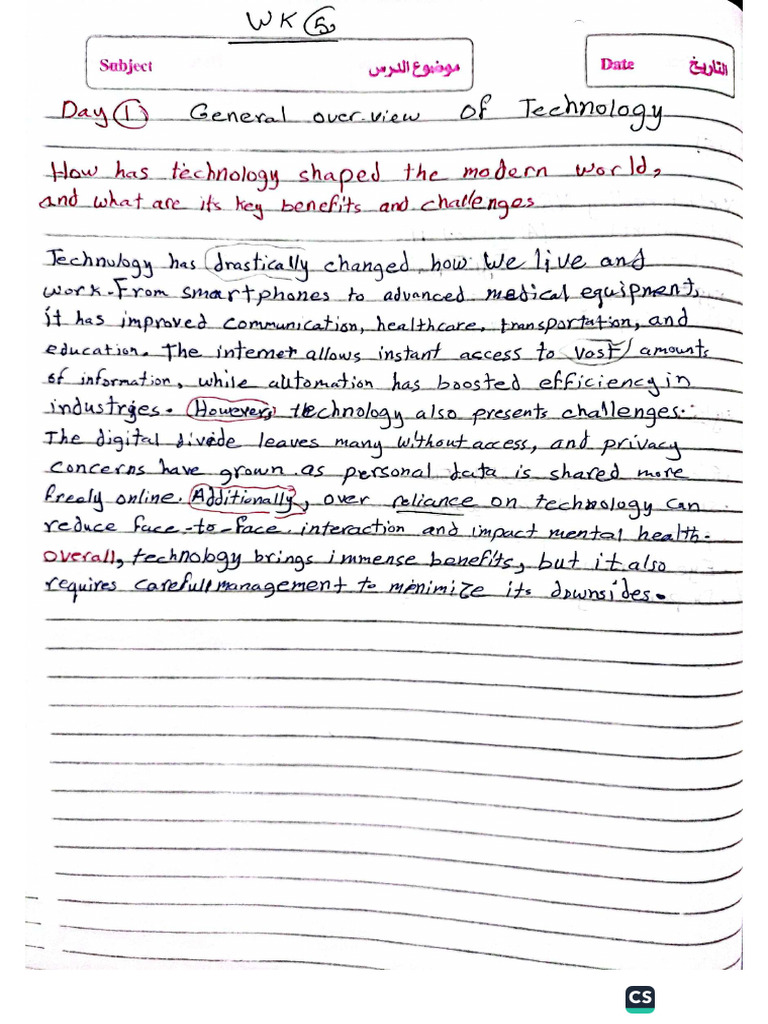 WK 5
Subject موضوع الدرس Date التاريخ
Day 1 General over-view of Technology
How has technology shaped the modern world,
and what are its key benefits and challenges
Technology has drastically changed how we live and
work. From smartphones to advanced medical equipment,
it has improved communication, healthcare, transportation, and
education. The internet allows instant access to vast amounts
of information, while automation has boosted efficiency in
industries. However, technology also presents challenges.
The digital divide leaves many without access, and privacy
concerns have grown as personal data is shared more
freely online. Additionally, over reliance on technology can
reduce face-to-face interaction and impact mental health.
overall, technology brings immense benefits, but it also
requires carefull management to menimize its downsides.
CS